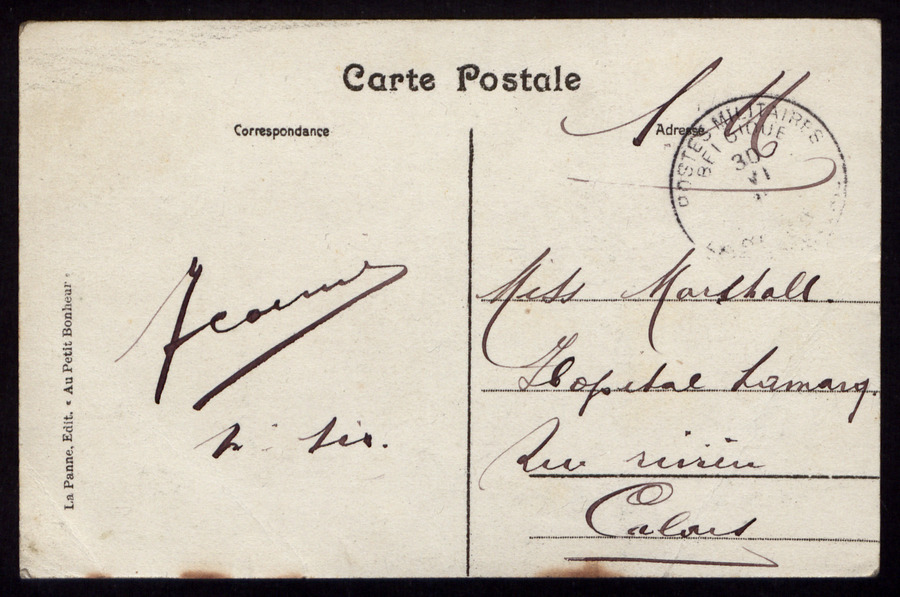 Carte Postale
Correspondance
Adresse
S. M
POSTES MILITAIRES
BELGIQUE
30
VI
Miss Marshall.
Hopital Lamarq.
Rue
Calais
Jeanne
La Panne, Edit. « Au Petit Bonheur »